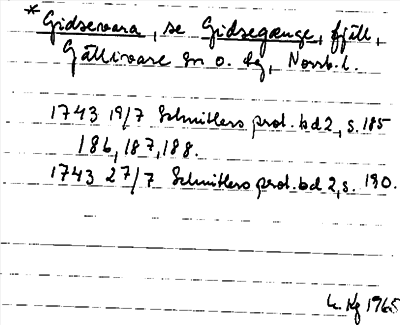 * Gidsevara, se Gidsegænge, fjäll,
Gällivare sn o. lfs, Norrb. l.
1743 19/7 Schnitlers prot. bd 2, s. 185
186, 187, 188.
1743 27/7 Schnitlers prot. bd 2, s. 190.
1965